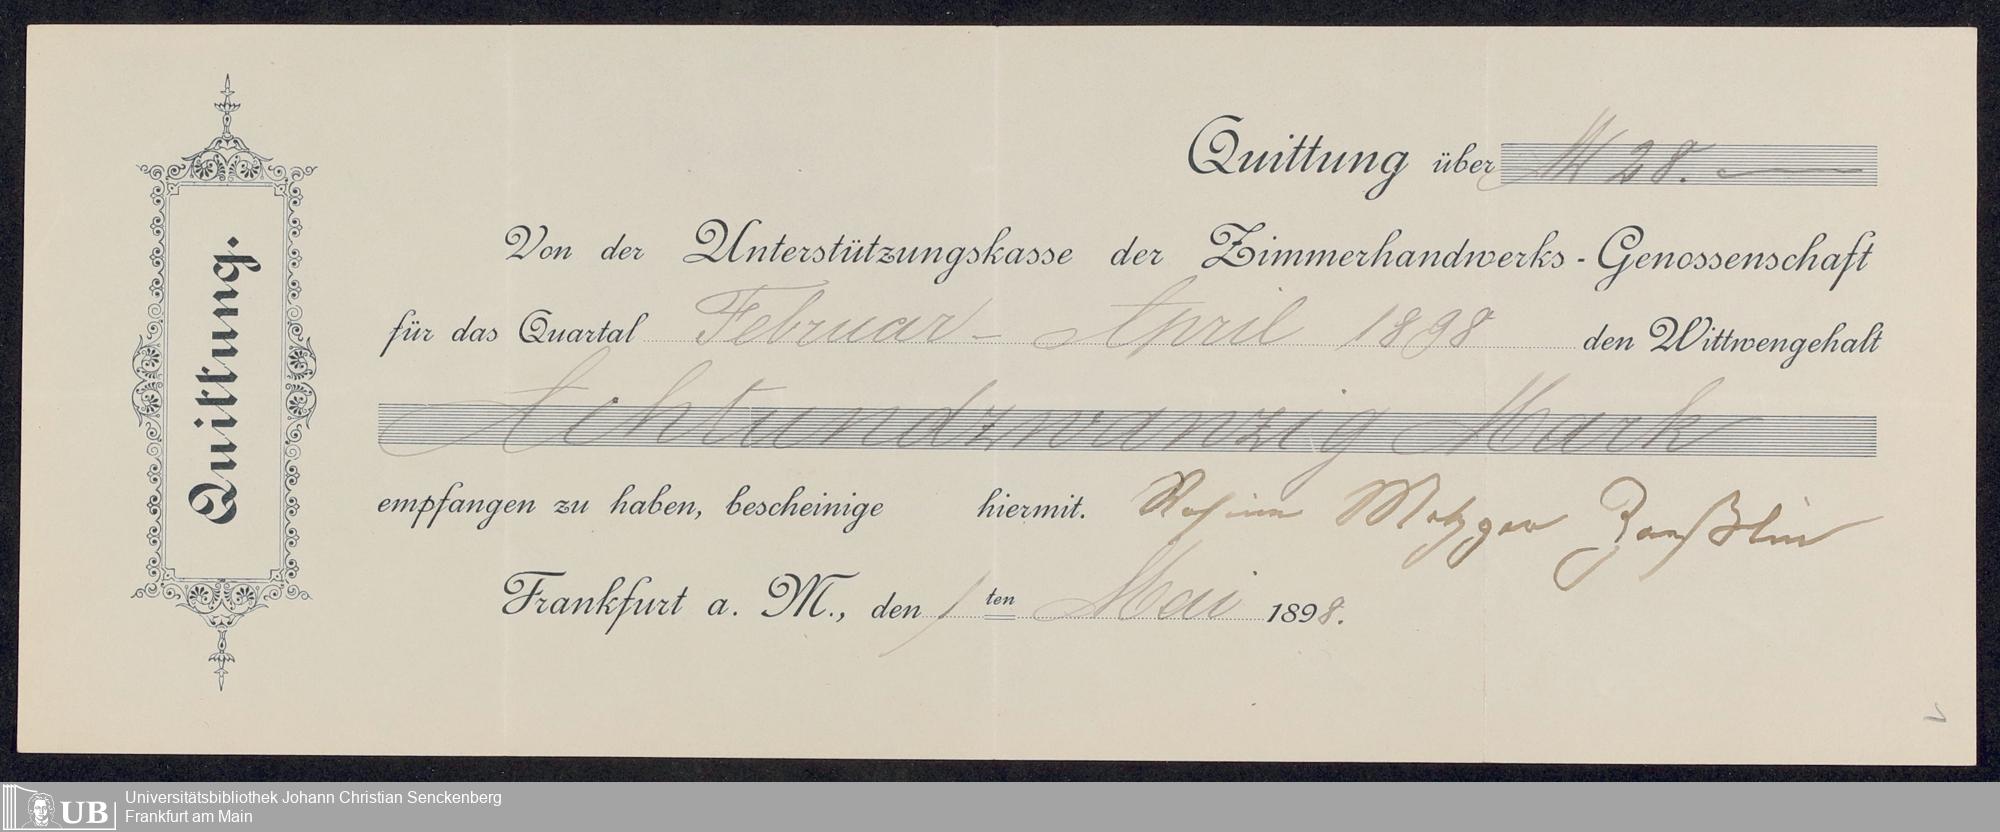 Quittung.
Quittung über M 28. —
Von der Unterstützungskasse der Zimmerhandwerks-Genossenschaft
für das Quartal Februar - April 1898 den Wittwengehalt
Achtundzwanzig Mark
empfangen zu haben, bescheinige hiermit. Metzger
Frankfurt a. M., den 1 ten Mai 1898.
UB
Universitätsbibliothek Johann Christian Senckenberg
Frankfurt am Main